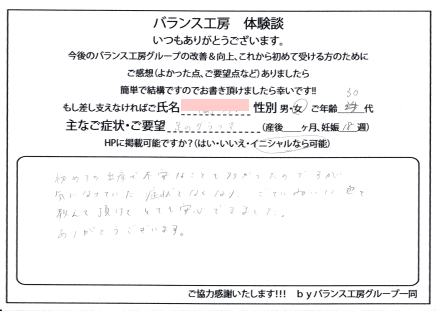 バランス工房 体験談
いつもありがとうございます。
今後のバランス工房グループの改善&向上、これから初めて受ける方のために
ご感想(よかった点、ご要望点など)ありましたら
簡単で結構ですのでお書き頂けましたら幸いです!!
もし差し支えなければご氏名 性別 男・女 ご年齢 30 代
主なご症状・ご要望 (産後 ヶ月、妊娠 18 週)
HPに掲載可能ですか?(はい・いいえ・イニシャルなら可能)
初めての出産で不安なことも多かったのですが
気になっていた症状もなくなり、
教えて頂けて とても安心できました。
ありがとうございます。
ご協力感謝いたします!!! byバランス工房グループ一同